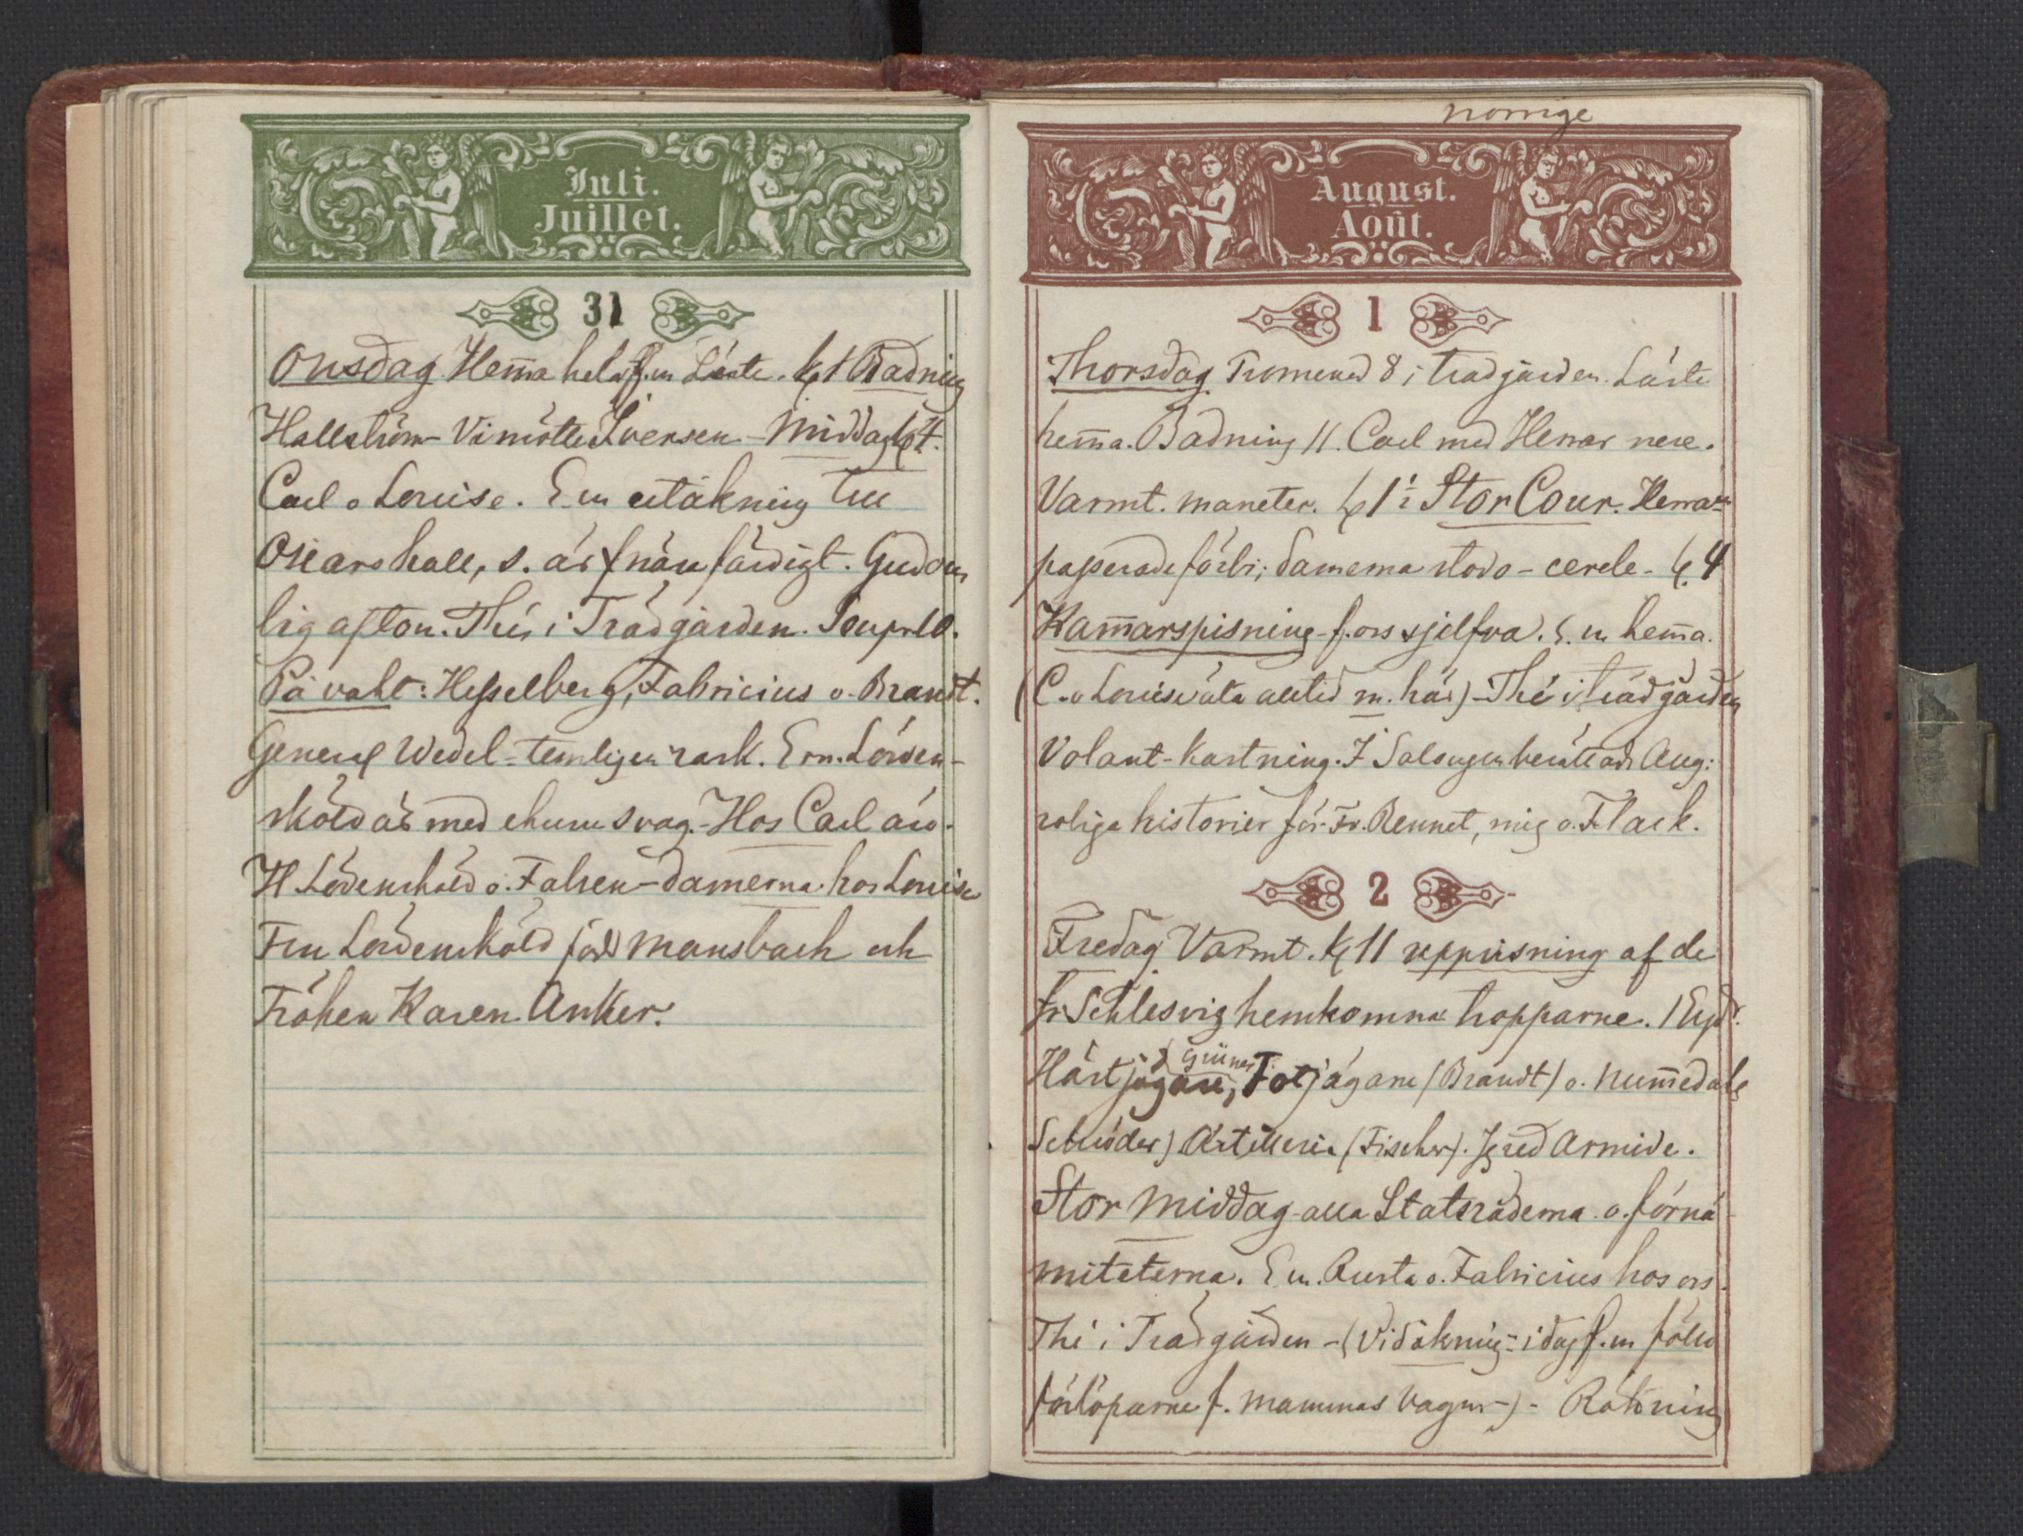 Juli.
Juillet.
31
Onsdag Hem̄a hela f.m Läste. kl 1 Badning
Hallström - Vi mötte Iversen - Middag kl 4.
Carl o Louise. E.m utåkning till
Oscarshall, s. är f nära färdigt. Gudom
lig afton. Thé i Trädgården. Soup. 10.
På vakt: Hesselberg, Fabricius o. Brandt.
General Wedel - temligen rask. Em. Löven-
sköld är med svag. - Hos Carl äro.
H Lövenskåld o. Falsen - damerna hos Louise
Fru Lövenskåld född Mansbach och
Fröken Karen Anker.
norrige
August.
Août.
1
Thorsdag Promenad 8 i trädgården. Läste
hem̄a. Badning 11. Carl med Herrar nere.
Varmt. maneter. kl 1½ Stor Cour. Herrar
passerade förbi; damerna stodo - cercle - kl. 4
Kam̄arspisning f. oss sjelfva. E. m hem̄a.
(C. o Louise äta alltid m. här) - Thé i trädgården
Volant-kastning. I Salongen berättade Aug:
roliga historier för Fr. Bennet, mig o. Flach.
2
Fredag Varmt. kl 11 uppvisning af de
fr Schlesvig hemkomna tropparne. 1 Esqdr.
Hästjägare, Grüner Fotjägare (Brandt) o. Num̄edals
Schröder) Artilleri (Fischer). Jg red Armide.
Stor Middag - alla Statsråderna o. förnä-
miteterna. E m. Rusta o. Fabricius hos oss.
Thé i Trädgården - (Vid åkning - i dag f. m följo
förlöparne f. Mammas vagn -) -